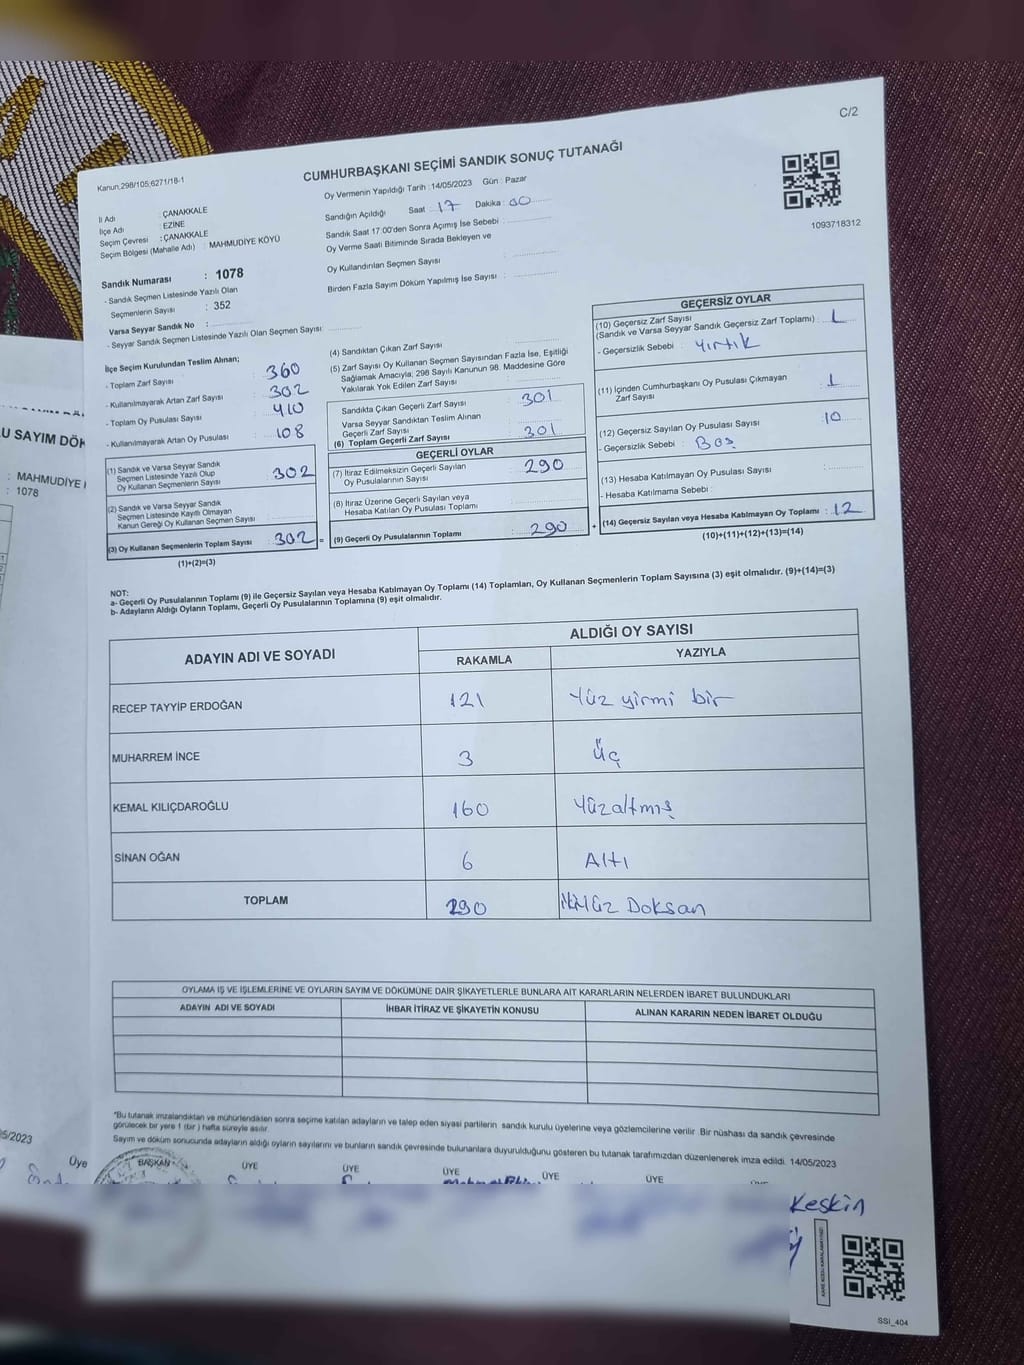 C/2
Kanun,298/105;6271/18-1
CUMHURBAŞKANI SEÇİMİ SANDIK SONUÇ TUTANAĞI
Oy Vermenin Yapıldığı Tarih :14/05/2023 Gün : Pazar
İl Adı : ÇANAKKALE
İlçe Adı : EZİNE
Seçim Çevresi : ÇANAKKALE
Seçim Bölgesi (Mahalle Adı) : MAHMUDİYE KÖYÜ
Sandığın Açıldığı Saat : 17 Dakika : 00
Sandık Saat 17:00'den Sonra Açımış İse Sebebi :
Oy Verme Saati Bitiminde Sırada Bekleyen ve
Oy Kullandırılan Seçmen Sayısı :
Birden Fazla Sayım Döküm Yapılmış İse Sayısı :
1093718312
Sandık Numarası : 1078
- Sandık Seçmen Listesinde Yazılı Olan
Seçmenlerin Sayısı : 352
Varsa Seyyar Sandık No :
- Seyyar Sandık Seçmen Listesinde Yazılı Olan Seçmen Sayısı:
İlçe Seçim Kurulundan Teslim Alınan;
- Toplam Zarf Sayısı : 360
- Kullanılmayarak Artan Zarf Sayısı : 302
- Toplam Oy Pusulası Sayısı : 410
- Kullanılmayarak Artan Oy Pusulası : 108
(1) Sandık ve Varsa Seyyar Sandık
Seçmen Listesinde Yazılı Olup
Oy Kullanan Seçmenlerin Sayısı : 302
(2) Sandık ve Varsa Seyyar Sandık
Seçmen Listesinde Kayıtlı Olmayan
Kanun Gereği Oy Kullanan Seçmen Sayısı :
(3) Oy Kullanan Seçmenlerin Toplam Sayısı : 302 =
(1)+(2)=(3)
(4) Sandıktan Çıkan Zarf Sayısı :
(5) Zarf Sayısı Oy Kullanan Seçmen Sayısından Fazla İse, Eşitliği
Sağlamak Amacıyla, 298 Sayılı Kanunun 98. Maddesine Göre
Yakılarak Yok Edilen Zarf Sayısı :
Sandıkta Çıkan Geçerli Zarf Sayısı : 301
Varsa Seyyar Sandıktan Teslim Alınan
Geçerli Zarf Sayısı :
(6) Toplam Geçerli Zarf Sayısı : 301
GEÇERLİ OYLAR
(7) İtiraz Edilmeksizin Geçerli Sayılan
Oy Pusulalarının Sayısı : 290
(8) İtiraz Üzerine Geçerli Sayılan veya
Hesaba Katılan Oy Pusulası Toplamı :
(9) Geçerli Oy Pusulalarının Toplamı : 290 +
GEÇERSİZ OYLAR
(10) Geçersiz Zarf Sayısı
(Sandık ve Varsa Seyyar Sandık Geçersiz Zarf Toplamı) : 1
- Geçersizlik Sebebi : Yırtık
(11) İçinden Cumhurbaşkanı Oy Pusulası Çıkmayan
Zarf Sayısı : 1
(12) Geçersiz Sayılan Oy Pusulası Sayısı : 10
- Geçersizlik Sebebi : Boş
(13) Hesaba Katılmayan Oy Pusulası Sayısı :
- Hesaba Katılmama Sebebi :
(14) Geçersiz Sayılan veya Hesaba Katılmayan Oy Toplamı : 12
(10)+(11)+(12)+(13)=(14)
NOT:
a- Geçerli Oy Pusulalarının Toplamı (9) ile Geçersiz Sayılan veya Hesaba Katılmayan Oy Toplamı (14) Toplamları, Oy Kullanan Seçmenlerin Toplam Sayısına (3) eşit olmalıdır. (9)+(14)=(3)
b- Adayların Aldığı Oyların Toplamı, Geçerli Oy Pusulalarının Toplamına (9) eşit olmalıdır.
ADAYIN ADI VE SOYADI
ALDIĞI OY SAYISI
RAKAMLA YAZIYLA
RECEP TAYYİP ERDOĞAN 121 Yüz yirmi bir
MUHARREM İNCE 3 Üç
KEMAL KILIÇDAROĞLU 160 Yüzaltmış
SİNAN OĞAN 6 Altı
TOPLAM 290 İkiYüz Doksan
OYLAMA İŞ VE İŞLEMLERİNE VE OYLARIN SAYIM VE DÖKÜMÜNE DAİR ŞİKAYETLERLE BUNLARA AİT KARARLARIN NELERDEN İBARET BULUNDUKLARI
ADAYIN ADI VE SOYADI İHBAR İTİRAZ VE ŞİKAYETİN KONUSU ALINAN KARARIN NEDEN İBARET OLDUĞU
*Bu tutanak imzalandıktan ve mühürlendikten sonra seçime katılan adayların ve talep eden siyasi partilerin sandık kurulu üyelerine veya gözlemcilerine verilir. Bir nüshası da sandık çevresinde
görülecek bir yere 1 (bir) hafta süreyle asılır.
Sayım ve döküm sonucunda adayların aldığı oyların sayılarını ve bunların sandık çevresinde bulunanlara duyurulduğunu gösteren bu tutanak tarafımızdan düzenlenerek imza edildi. 14/05/2023
BAŞKAN ÜYE ÜYE ÜYE ÜYE ÜYE
Keskin
SSI_404
U SAYIM DÖK
: MAHMUDİYE
: 1078
05/2023
Üye